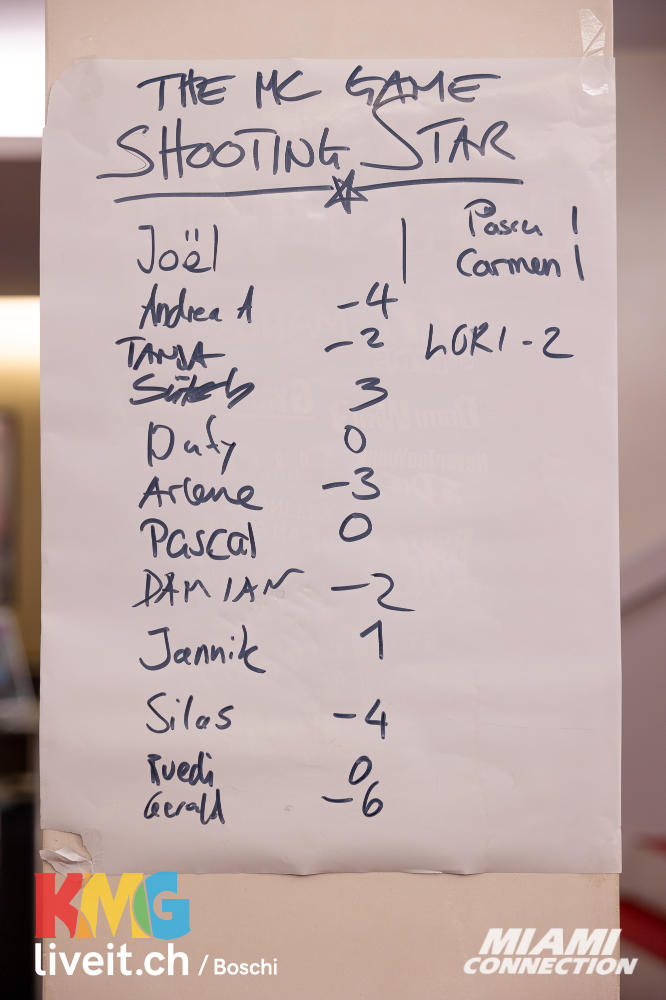 THE MC GAME
SHOOTING STAR
Joël |
Andrea A -4
TANJA -2
3
Dufy 0
Arlene -3
Pascal 0
DAMIAN -2
Jannik 1
Silas -4
Ruedi 0
Gerald -6
Pascu 1
Carmen 1
LORI -2
KMG
liveit.ch / Boschi
MIAMI
CONNECTION